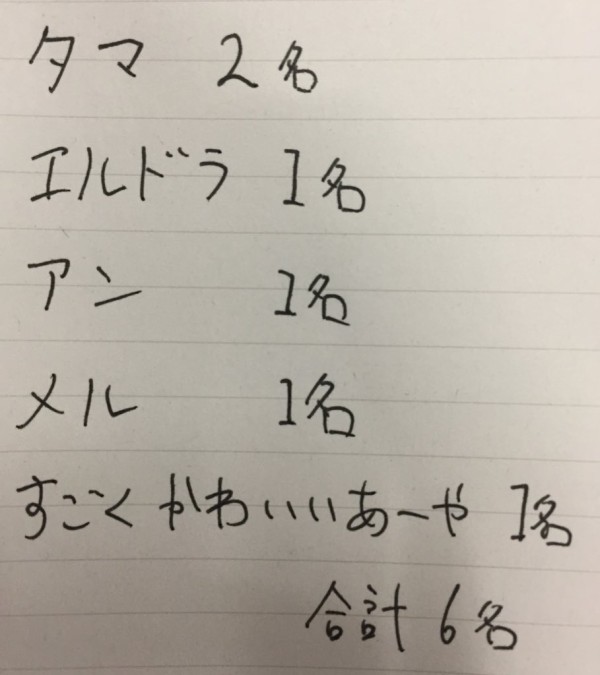 タマ 2名
エルドラ 1名
アン 1名
メル 1名
すごくかわいいあーや 1名
合計 6名